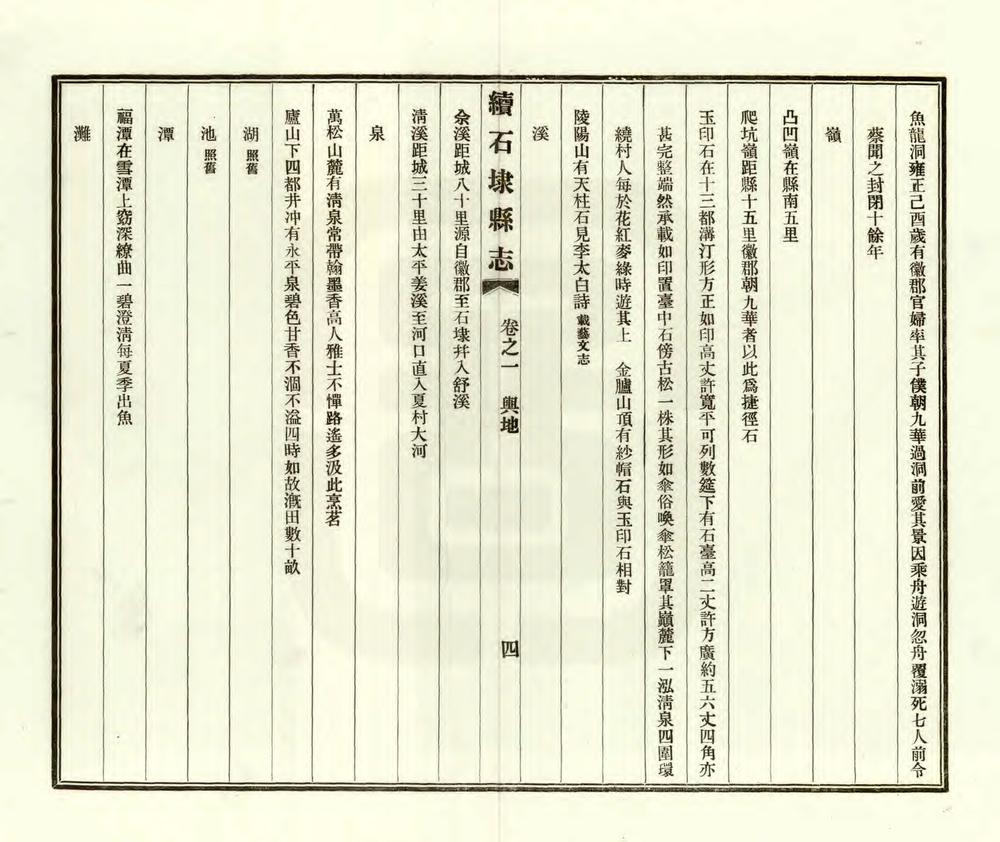 魚龍洞雍正己酉歲有徽郡官婦率其子僕朝九華過洞前愛其景因乘舟遊洞忽舟覆溺死七人前令
蔡聞之封閉十餘年
嶺
凸凹嶺在縣南五里
爬坑嶺距縣十五里徽郡朝九華者以此爲捷徑石
玉印石在十三都溝汀形方正如印高丈許寬平可列數筵下有石臺高二丈許方廣約五六丈四角亦
甚完整端然承載如印置臺中石傍古松一株其形如傘俗喚傘松籠罩其巔麓下一泓清泉四圍環
繞村人每於花紅麥綠時遊其上 金臚山頂有紗帽石與玉印石相對
陵陽山有天柱石見李太白詩 載藝文志
溪
續石埭縣志 卷之一 輿地 四
佘溪距城八十里源自徽郡至石埭幷入舒溪
清溪距城三十里由太平姜溪至河口直入夏村大河
泉
萬松山麓有清泉常帶翰墨香高人雅士不憚路遙多汲此烹茗
廬山下四都井冲有永平泉碧色甘香不涸不溢四時如故漑田數十畝
湖 照舊
池 照舊
潭
福潭在雪潭上窈深繚曲一碧澄清每夏季出魚
灘